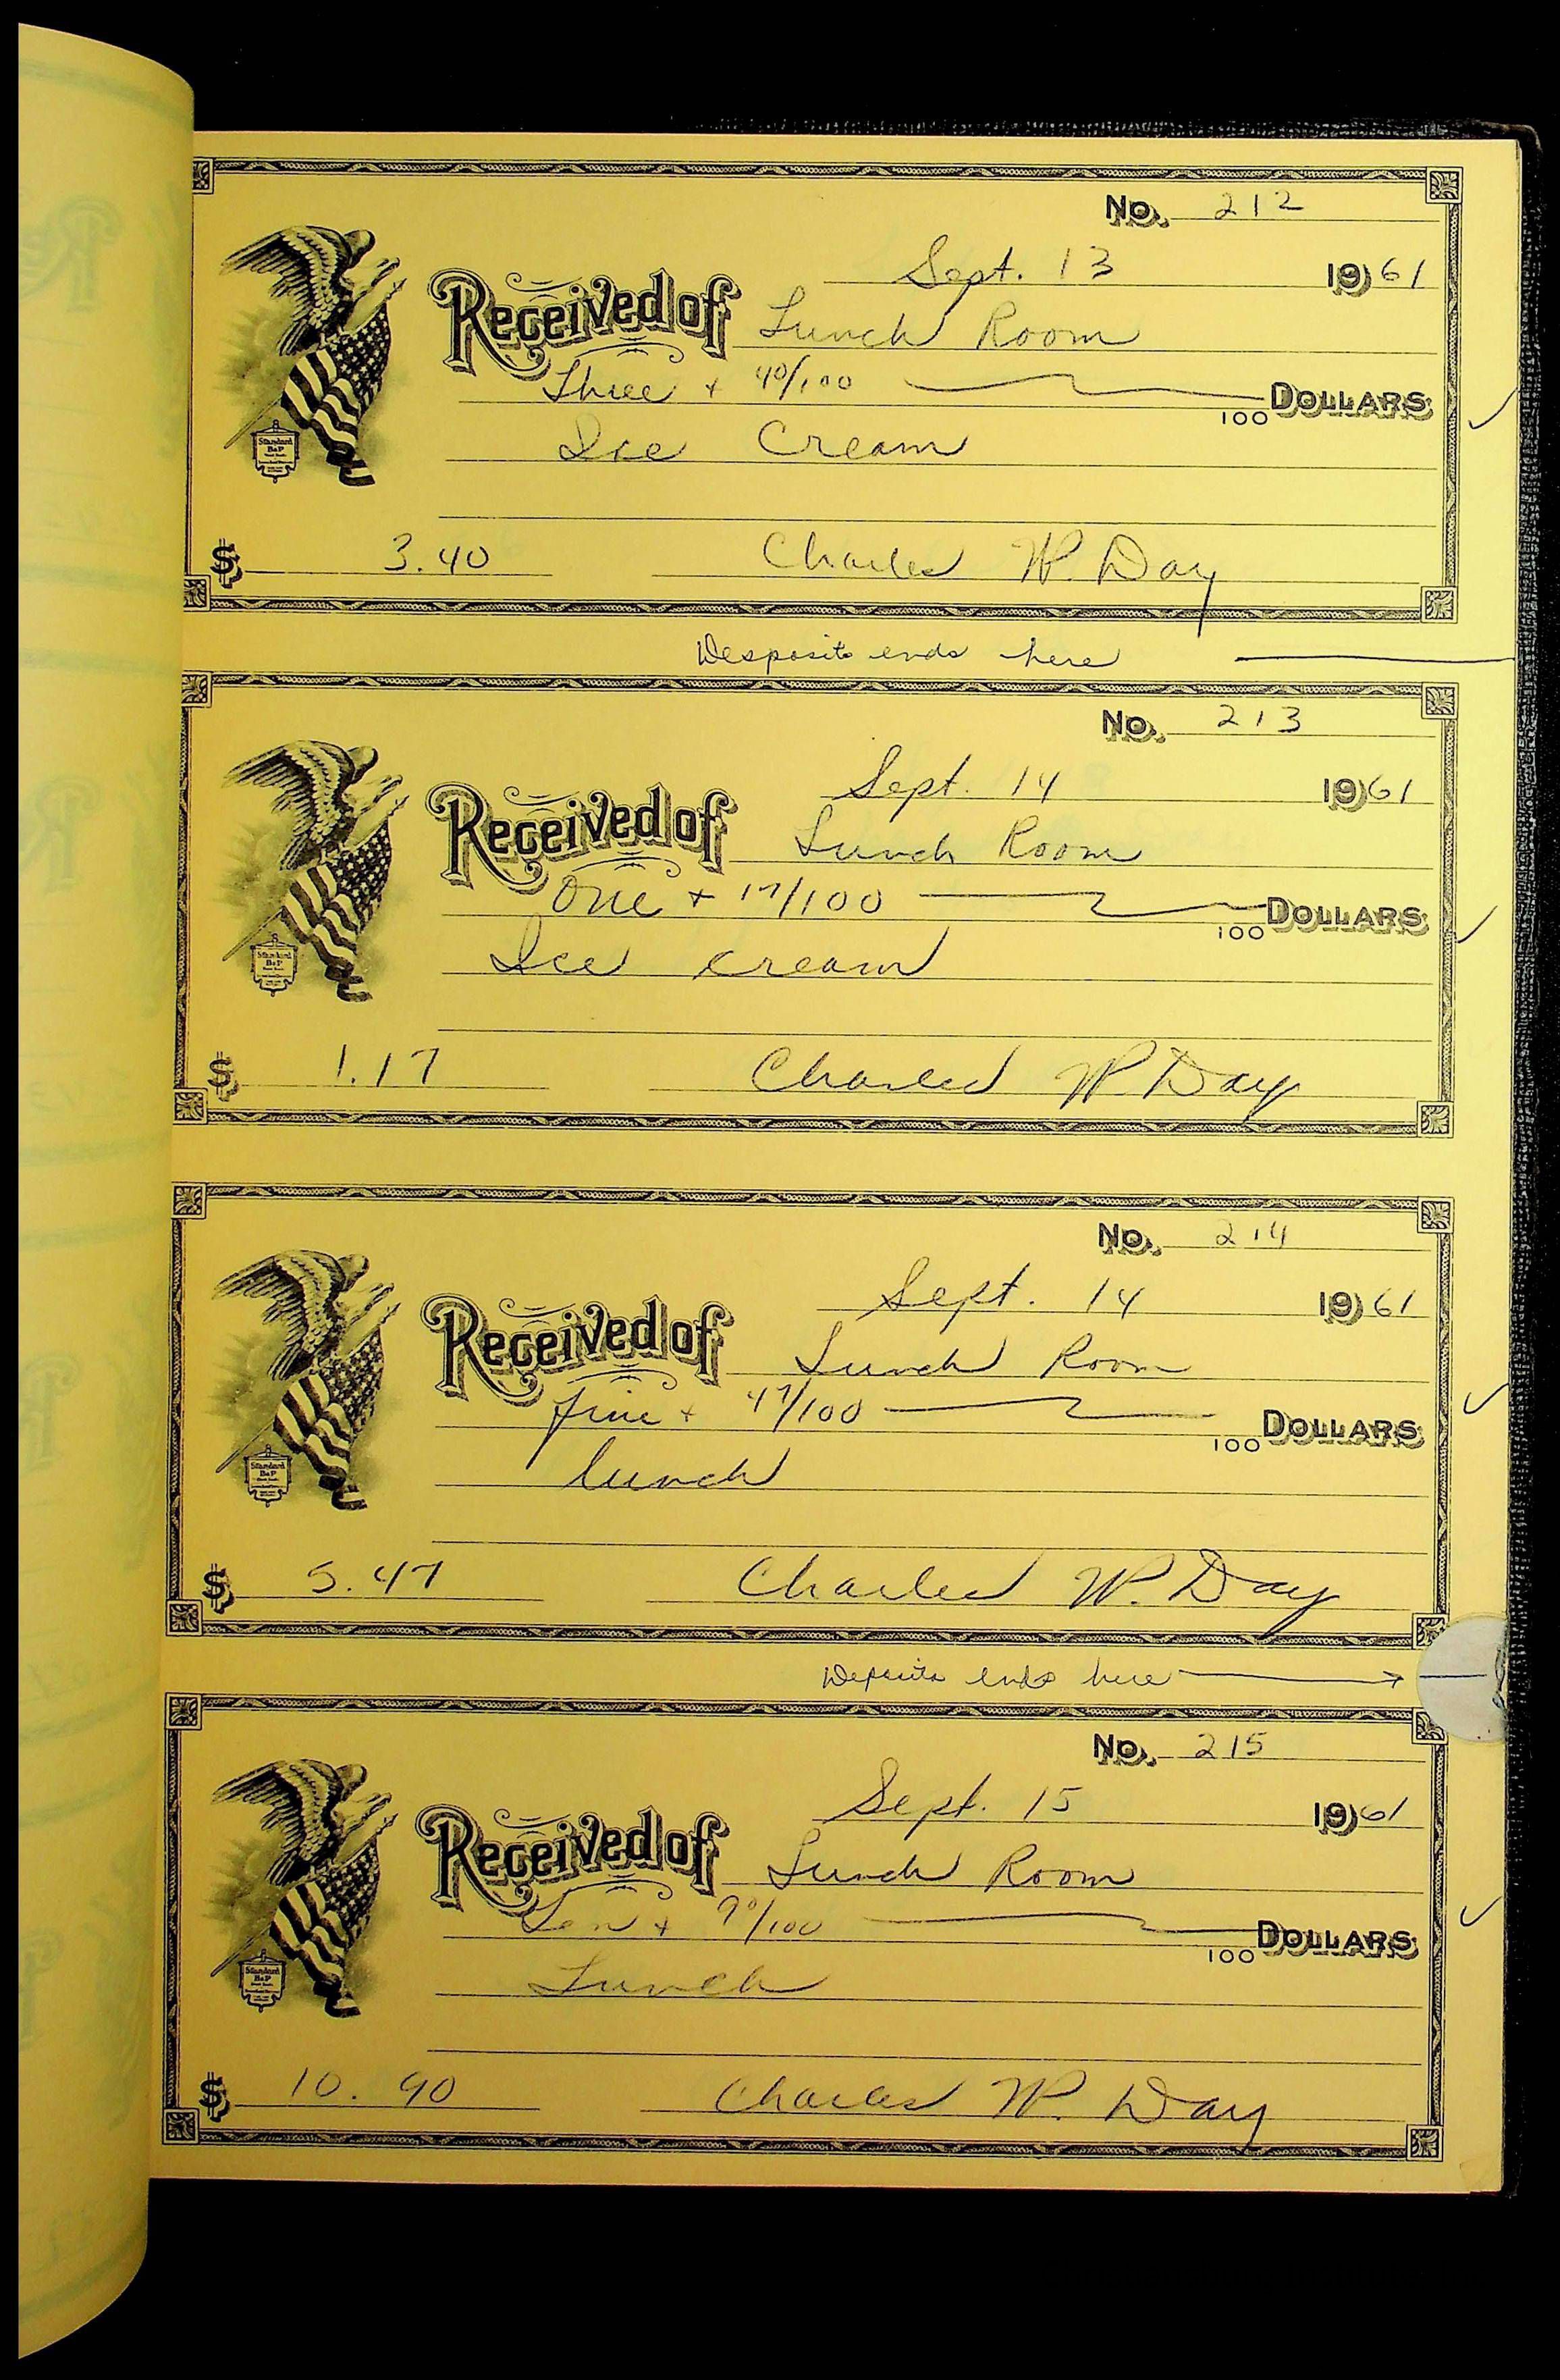 No. 212
Sept. 13 1961
Received of Lunch Room
Three + 40/100 100 DOLLARS
Ice Cream
Standard
B&P
$ 3.40 Charles W. Day
Desposits ends here
No. 213
Sept. 14 1961
Received of Lunch Room
One + 17/100 100 DOLLARS
Ice cream
Standard
B&P
$ 1.17 Charles W. Day
No. 214
Sept. 14 1961
Received of Lunch Room
five + 47/100 100 DOLLARS
lunch
Standard
B&P
$ 5.47 Charles W. Day
Deposits ends here
No. 215
Sept. 15 1961
Received of Lunch Room
Ten + 90/100 100 DOLLARS
Lunch
Standard
B&P
$ 10.90 Charles W. Day